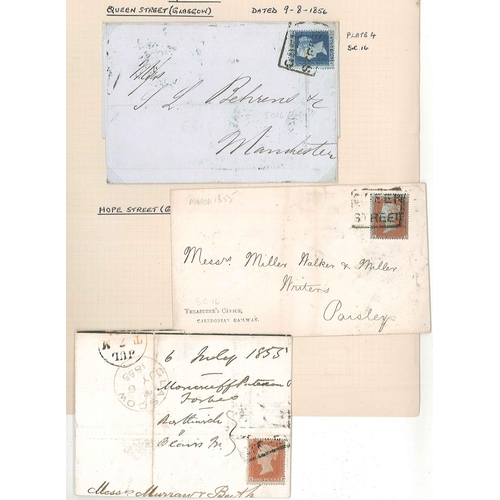 QUEEN STREET (GLASGOW) DATED 9-8-1856
PLATE 4
S.C. 16
Messrs
S. L. Behrens & Co
Manchester
HOPE STREET (G
MARCH 1855
STREET
Messrs. Miller Walker & Miller
Writers
Paisley
S.C. 16
TREASURER'S OFFICE,
CALEDONIAN RAILWAY.
JUL
GLASGOW
1855
6 July 1855
Moncrieff Paterson &
Forbes
Messrs Murray & Beith